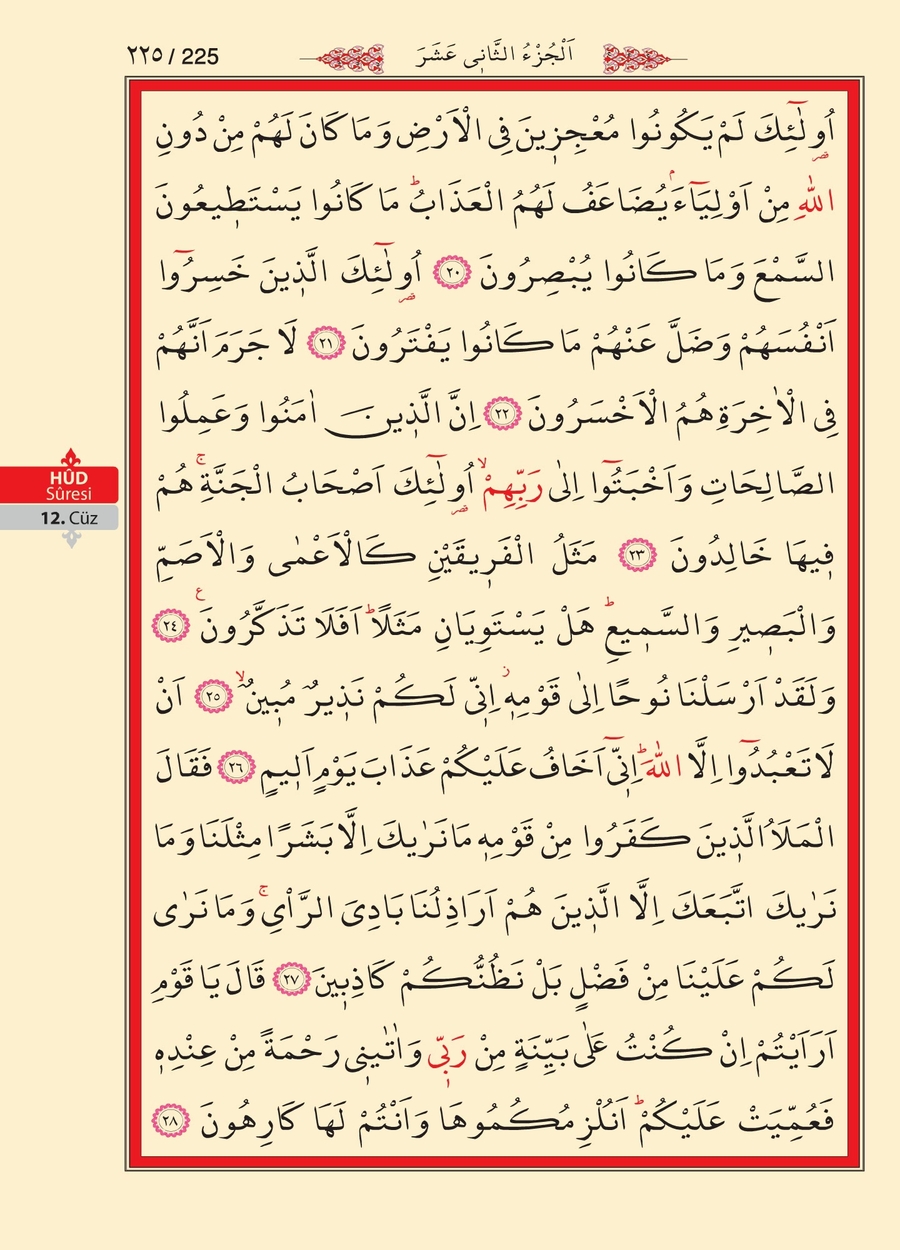 ٢٢٥ / 225
اَلْجُزْءُ الثَّانٖى عَشَرَ
اُو۬لٰٓئِكَ لَمْ يَكُونُوا مُعْجِزٖينَ فِى الْاَرْضِ وَمَا كَانَ لَهُمْ مِنْ دُونِ
قصر
اللّٰهِ مِنْ اَوْلِيَٓاءَۘ يُضَاعَفُ لَهُمُ الْعَذَابُۜ مَا كَانُوا يَسْتَطٖيعُونَ
السَّمْعَ وَمَا كَانُوا يُبْصِرُونَ ﴿٢٠﴾ اُو۬لٰٓئِكَ الَّذٖينَ خَسِرُٓوا
قصر
اَنْفُسَهُمْ وَضَلَّ عَنْهُمْ مَا كَانُوا يَفْتَرُونَ ﴿٢١﴾ لَا جَرَمَ اَنَّهُمْ
فِى الْاٰخِرَةِ هُمُ الْاَخْسَرُونَ ﴿٢٢﴾ اِنَّ الَّذٖينَ اٰمَنُوا وَعَمِلُوا
الصَّالِحَاتِ وَاَخْبَتُٓوا اِلٰى رَبِّهِمْۙ اُو۬لٰٓئِكَ اَصْحَابُ الْجَنَّةِۚ هُمْ
قصر
فٖيهَا خَالِدُونَ ﴿٢٣﴾ مَثَلُ الْفَرٖيقَيْنِ كَالْاَعْمٰى وَالْاَصَمِّ
وَالْبَصٖيرِ وَالسَّمٖيعِۜ هَلْ يَسْتَوِيَانِ مَثَلًاۜ اَفَلَا تَذَكَّرُونَ ع ﴿٢٤﴾
وَلَقَدْ اَرْسَلْنَا نُوحًا اِلٰى قَوْمِهٖؗ اِنّٖى لَكُمْ نَذٖيرٌ مُبٖينٌۙ ﴿٢٥﴾ اَنْ
لَا تَعْبُدُٓوا اِلَّا اللّٰهَۜ اِنّٖٓى اَخَافُ عَلَيْكُمْ عَذَابَ يَوْمٍ اَلٖيمٍ ﴿٢٦﴾ فَقَالَ
الْمَلَاُ الَّذٖينَ كَفَرُوا مِنْ قَوْمِهٖ مَا نَرٰيكَ اِلَّا بَشَرًا مِثْلَنَا وَمَا
نَرٰيكَ اتَّبَعَكَ اِلَّا الَّذٖينَ هُمْ اَرَاذِلُنَا بَادِىَ الرَّأْىِۚ وَمَا نَرٰى
لَكُمْ عَلَيْنَا مِنْ فَضْلٍ بَلْ نَظُنُّكُمْ كَاذِبٖينَ ﴿٢٧﴾ قَالَ يَا قَوْمِ
اَرَاَيْتُمْ اِنْ كُنْتُ عَلٰى بَيِّنَةٍ مِنْ رَبّٖى وَاٰتٰينٖى رَحْمَةً مِنْ عِنْدِهٖ
فَعُمِّيَتْ عَلَيْكُمْۜ اَنُلْزِمُكُمُوهَا وَاَنْتُمْ لَهَا كَارِهُونَ ﴿٢٨﴾
HÛD
Sûresi
12. Cüz